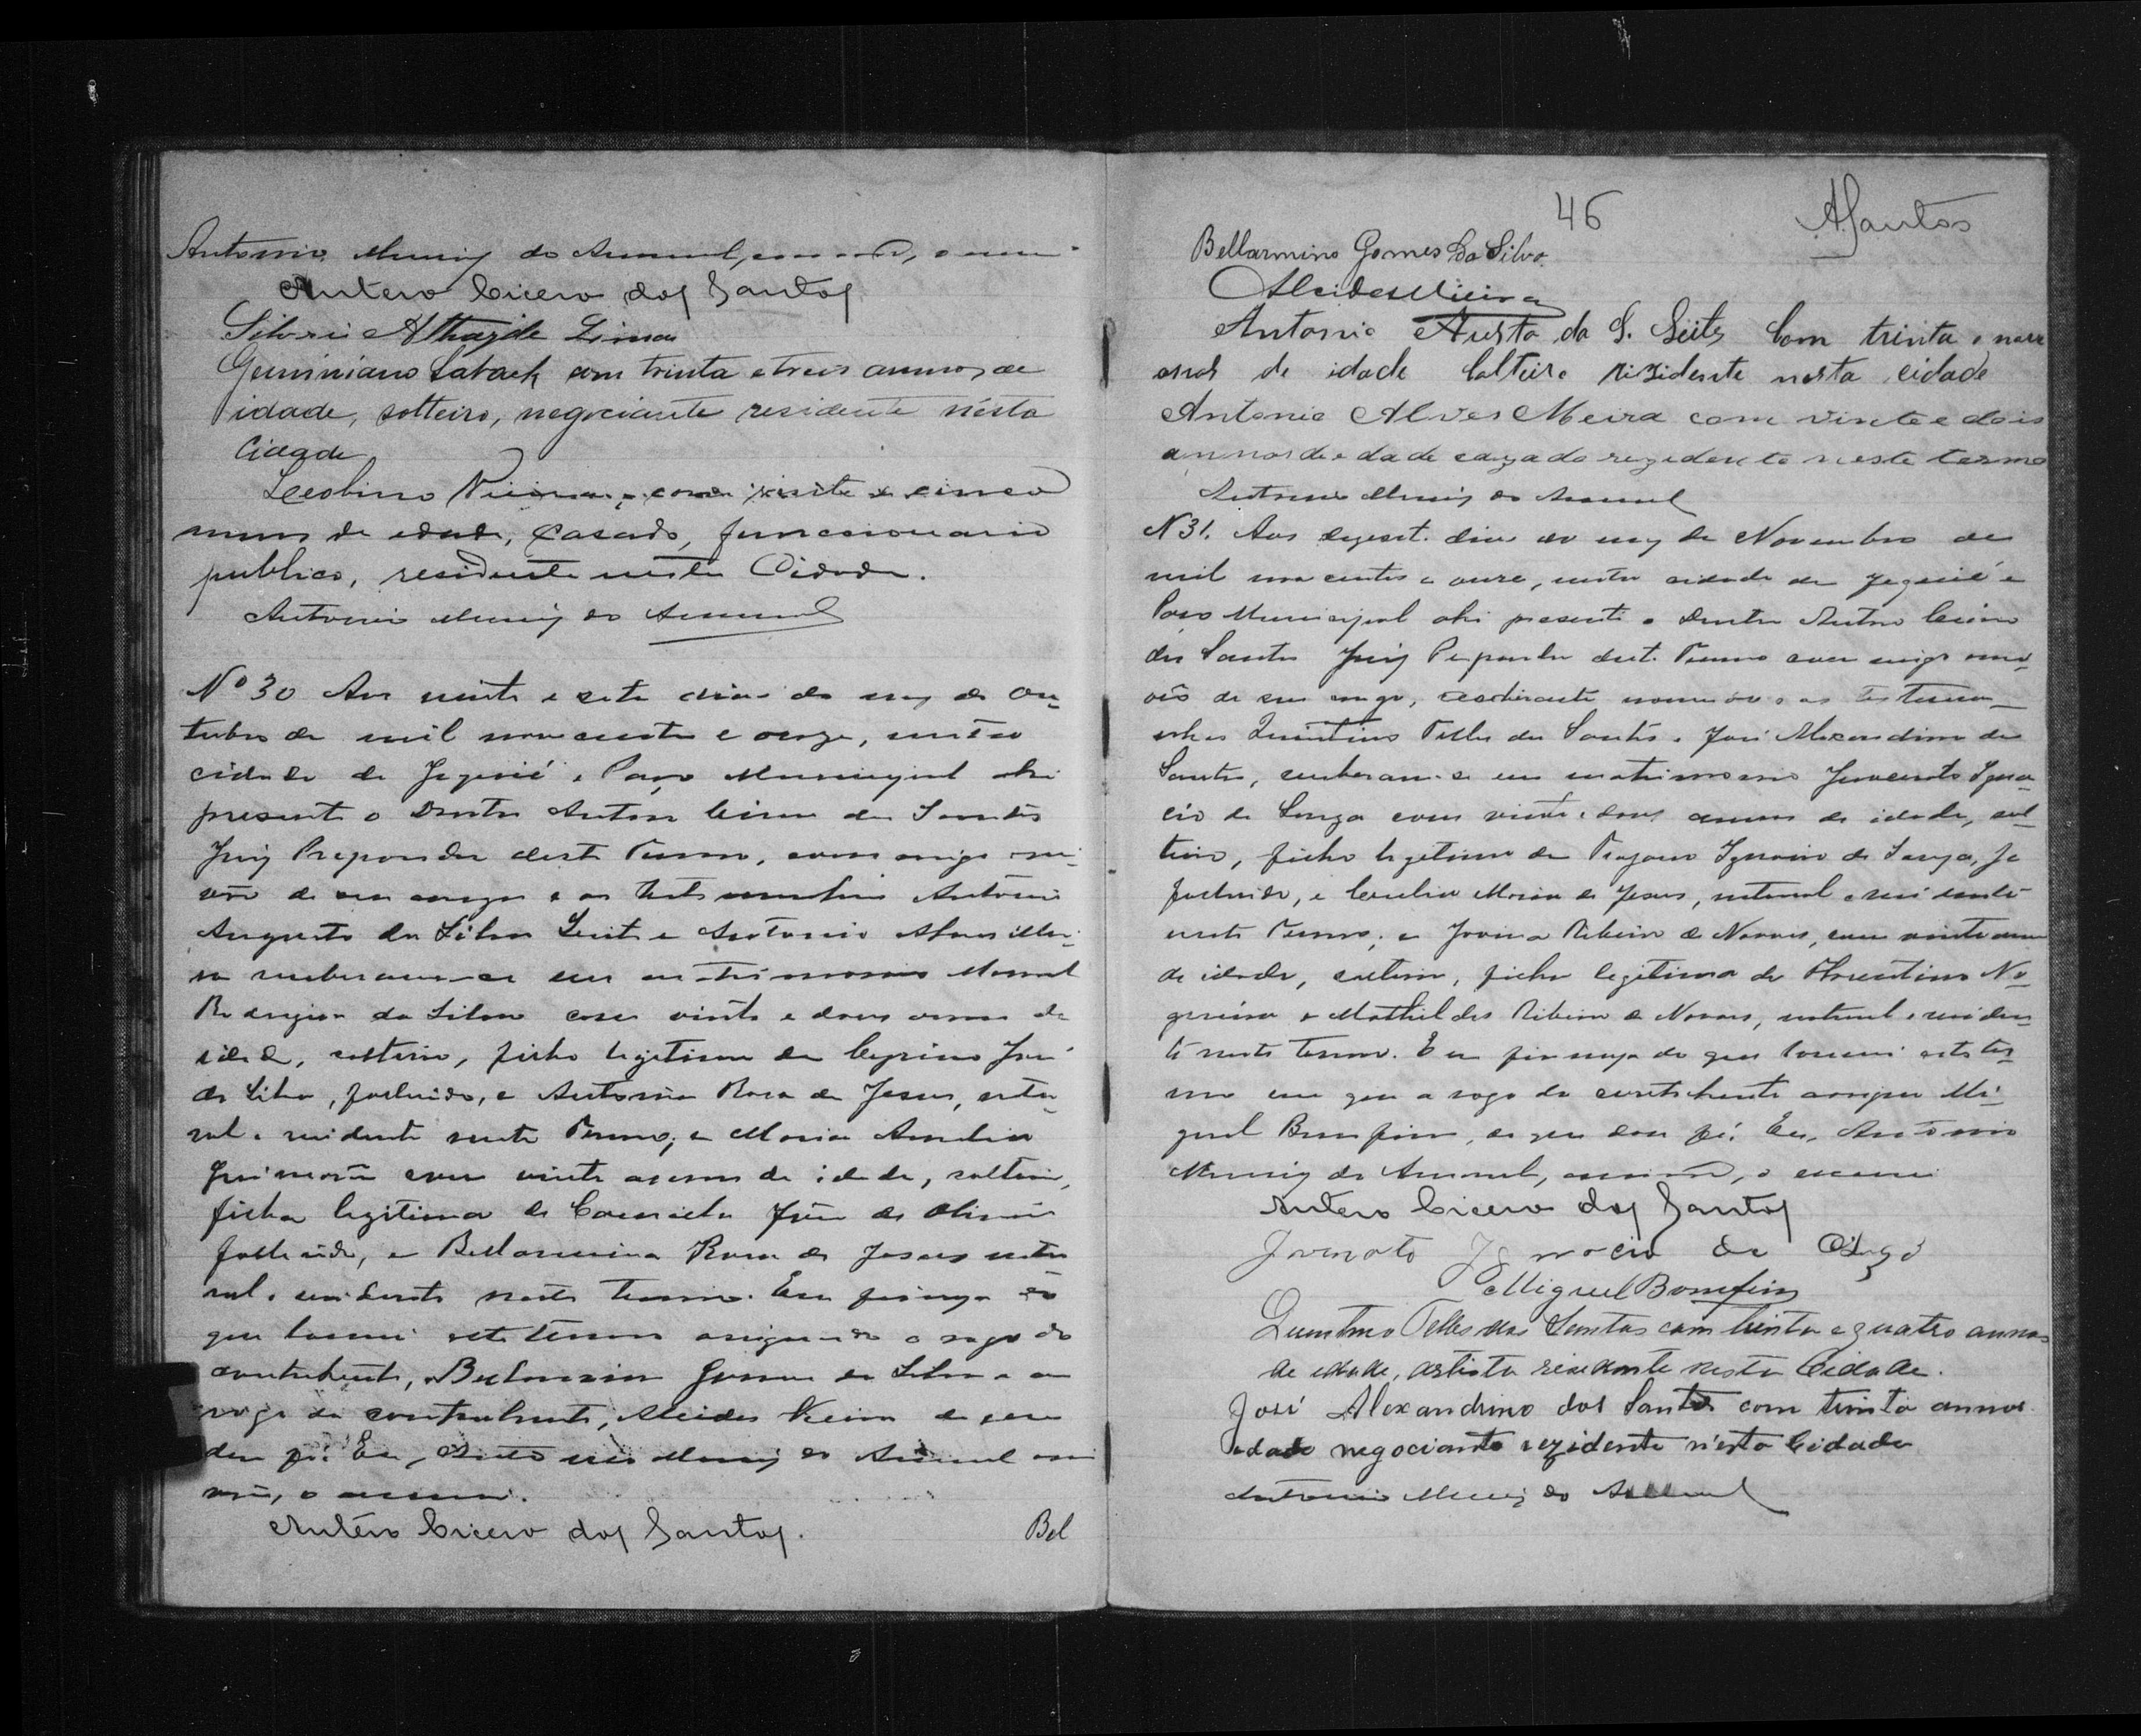 Antonio Muniz do Amaral, escrivão, o escrevi
Antero Cicero dos Santos
Silverio Athayde Lima
Geminiano Saback com trinta e treis annos de
idade, solteiro, negociante residente nésta
Cidade
Leolino Vieira, com vinte e cinco
annos de edade, casado, funccionario
publico, residente nesta Cidade.
Antonio Muniz do Amaral
Nº 30 Aos vinte e sete dias do mez de Ou-
tubro de mil nove centos e onze, nesta
cidade de Jequié e Paço Municipal ahi
presente o Doutor Antero Cicero dos Santos
Juiz Preparador deste Termo, com migo escri-
vão de seu cargo e as testemunhas Antonio
Augusto da Silva Leite e Antonio Alves Mei-
ra receberam-se em matrimonio Manoel
Rodrigues da Silva com vinte e dous annos de
idade, solteiro, filho legitimo de Cyprino José
da Silva, fallecido, e Antonia Rosa de Jesus, natu-
ral e residente neste Termo; e Maria Amelia
com vinte annos de idade, solteira,
filha legitima de José de Oliveira
fallecido, e Bellarmina Rosa de Jesus natu
ral e residente neste termo. Em firmeza do
que lavrei este termo assignando a rogo do
contrahente, Bellarmino Gomes da Silva e a
rogo da contrahente, Alcides Vieira do que
dou fé. Eu, Antonio Muniz do Amaral escri
vão, o escrevi.
Antero Cicero dos Santos.
Bel
46
ASantos
Bellarmino Gomes da Silva
Alcides Vieira
Antonio Austo da S. Leite Com trinta e nove
annos de idade Solteiro rizidente nesta cidade
Antonio Alves Meira com vinte e dois
annos de edade cazado rezedente neste termo
Antonio Muniz do Amaral
N 31. Aos dezesete dias do mez de Novembro de
mil nove centos e onze, nesta cidade de Jequié e
Paço Municipal ahi presente o Doutor Antero Cicero
dos Santos Juiz Preparador deste Termo com migo escri
vão de seu cargo, as testemu-
nhas Quintino Telles dos Santos e José Alexandrino dos
Santos, receberam-se em matrimonio Innocento Igna-
cio de Souza com vinte e dous annos de idade, sol-
teiro, filho legitimo de Trajano Ignacio de Souza, já
fallecido, e Maria de Jesus, natural e residente
neste Termo; e Jovina Ribeiro de Novaes, com vinte annos
de idade, solteira, filha legitima de Florentino No-
gueira e Mathildes Ribeiro de Novaes, natural e residen
te neste termo. E em firmeza do que lavrei este ter-
mo em que a rogo da contrahente assigna Mi-
guel Bomfim, do que dou fé. Eu, Antonio
Muniz do Amaral, escrivão, o escrevi
Antero Cicero dos Santos
Innoceto Ignocio de Souza
Miguel Bomfim
Quintino Telles dos Santos com trinta e quatro annos
de edade, artista residente nesta Cidade.
José Alexandrino dos Santos com trinta annos
edade negociante rezidente n'esta Cidade
Antonio Muniz do Amaral